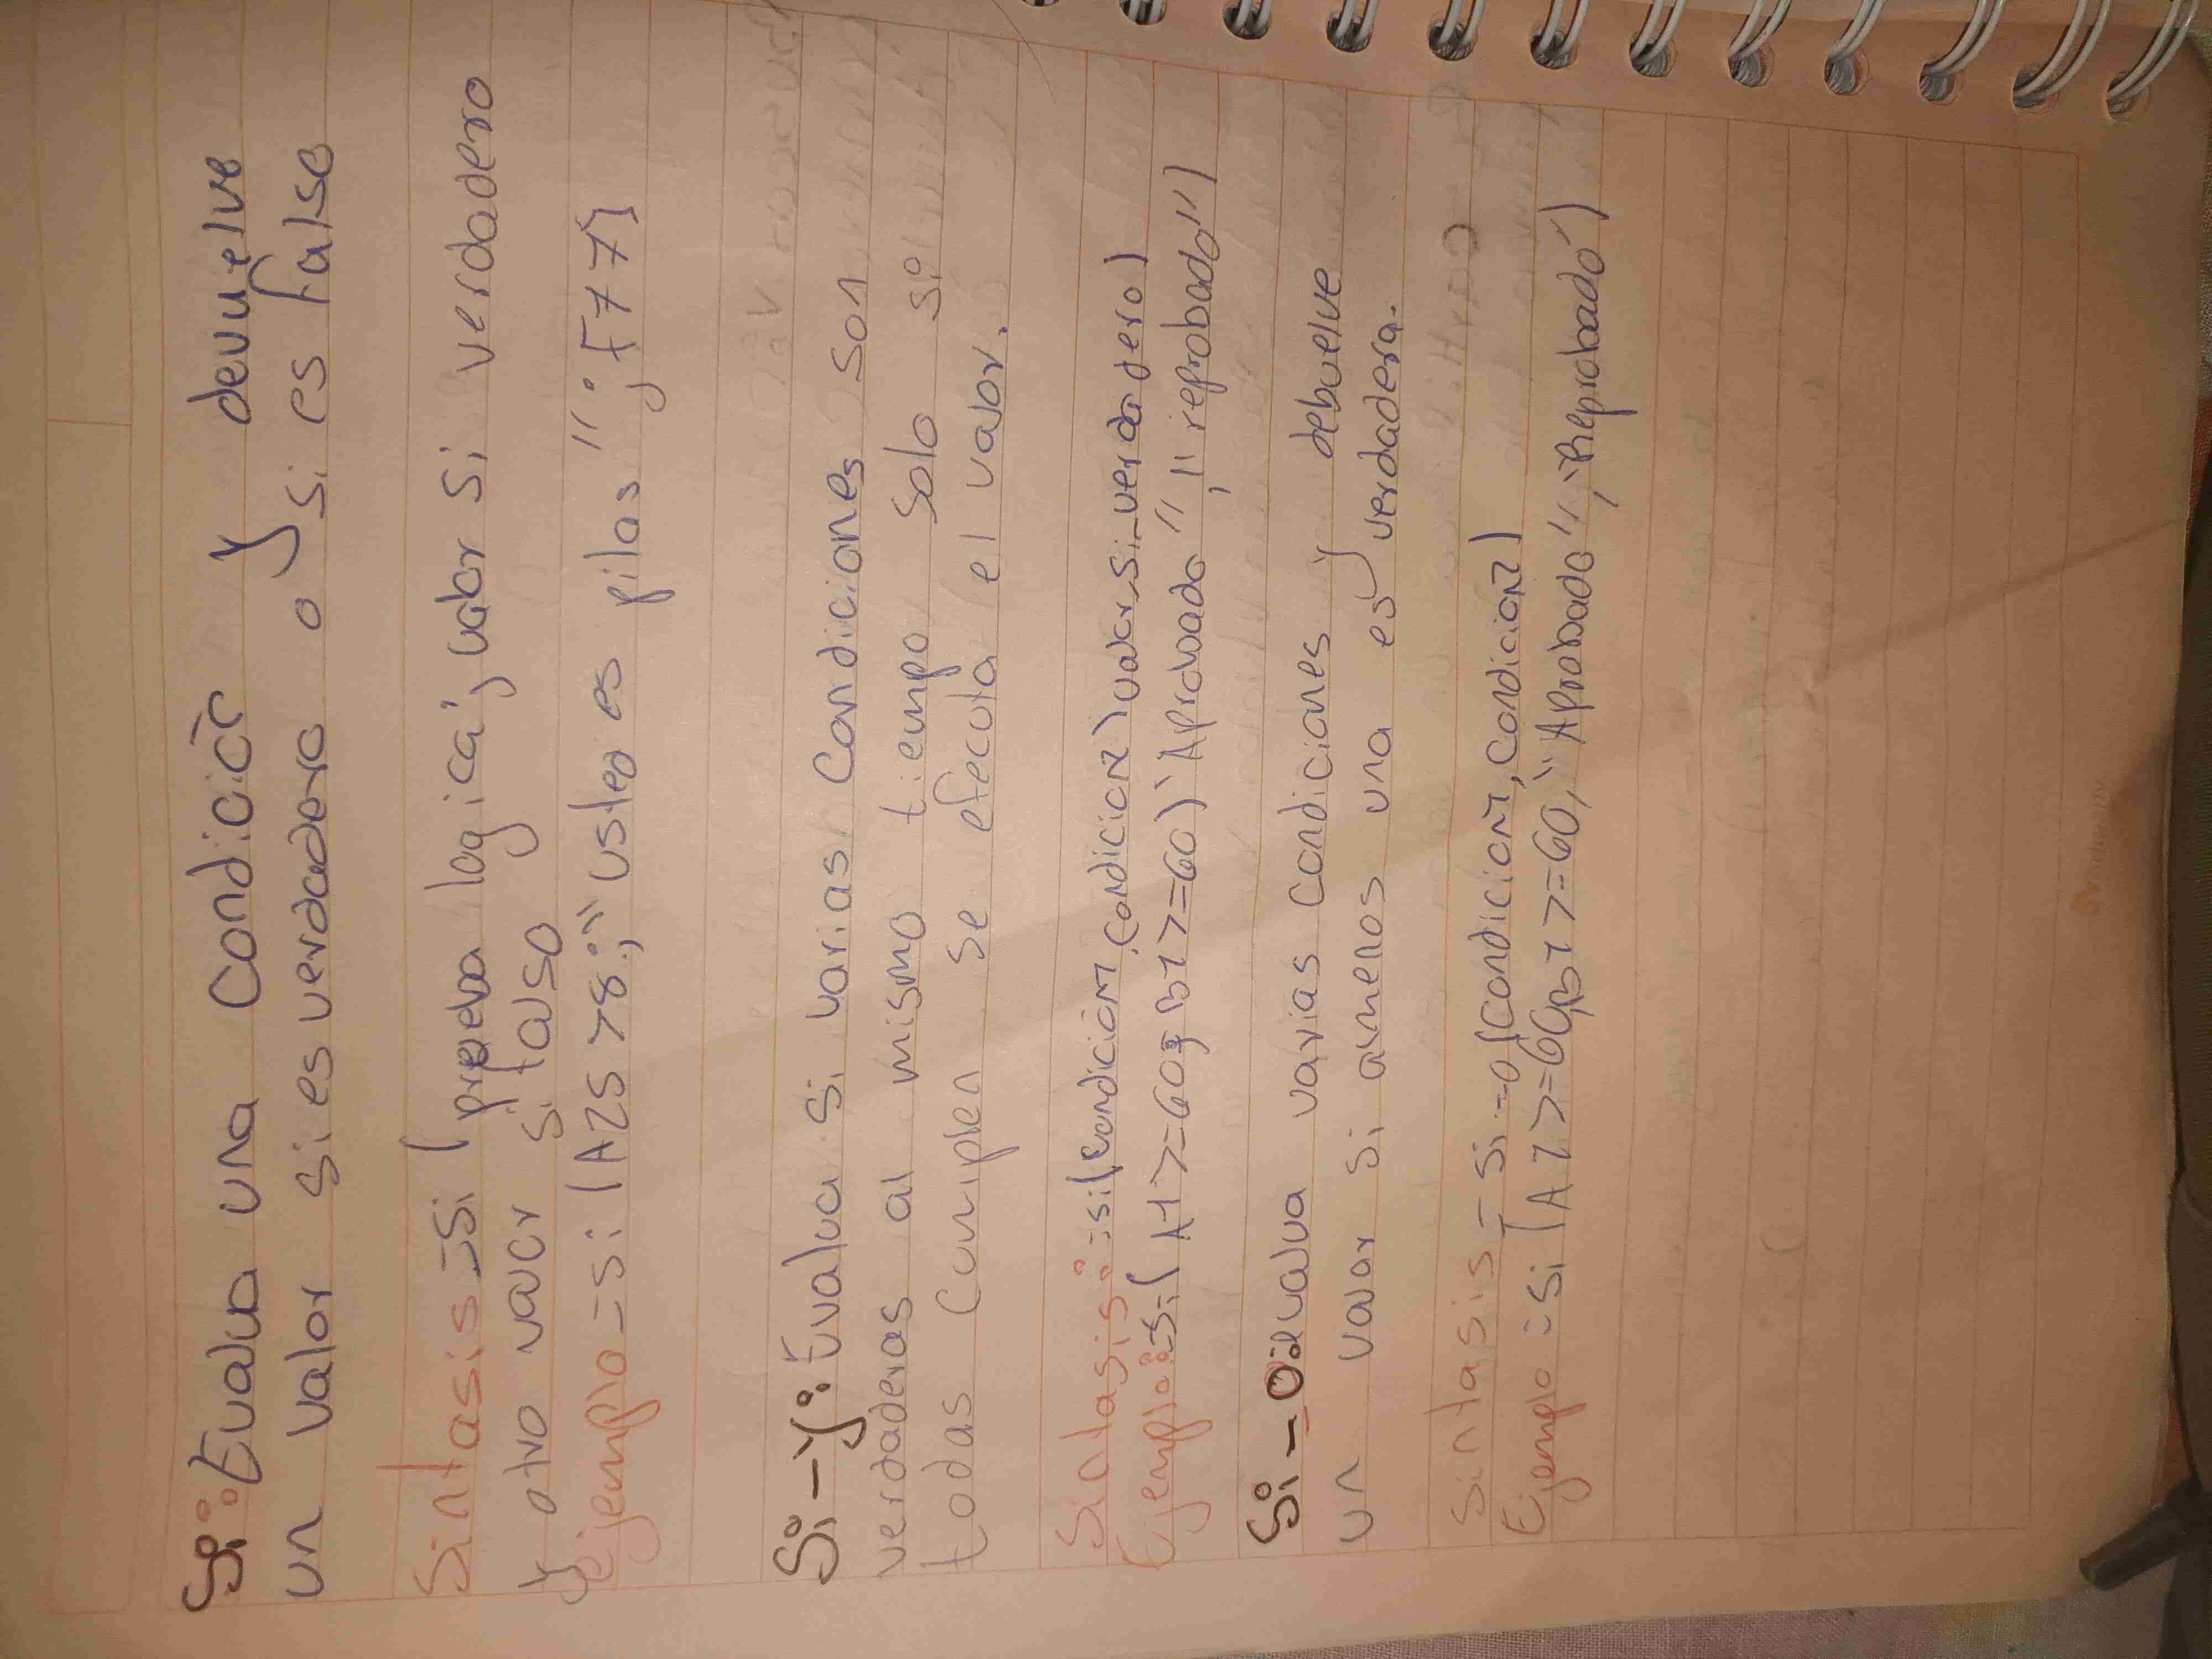 Si: Evalua una Condición y devuelve
un valor si es verdadero o y si es falso
Sintasis =Si (prueba logica; valor si verdadero
y otro valor si falso
ejemplo =si (A25 >8; "usted es pilas"; F77)
Si-y: Evalua si varias condiciones son
verdaderas al mismo tiempo solo si
todas cumplen se efecuta el valor.
Sintasis: =si(condicion1, condicion2) valor_si_verdadero)
Ejemplo: =si(A1>=60; B1>=60) "Aprobado", "reprobado")
Si-O: evalua varias condiciones y debuelve
un valor si almenos una es verdadera.
sintasis = si-o (condicion1, condicion2)
Ejemplo =si (A1>=60, B1>=60, "Aprobado", "Reprobado")